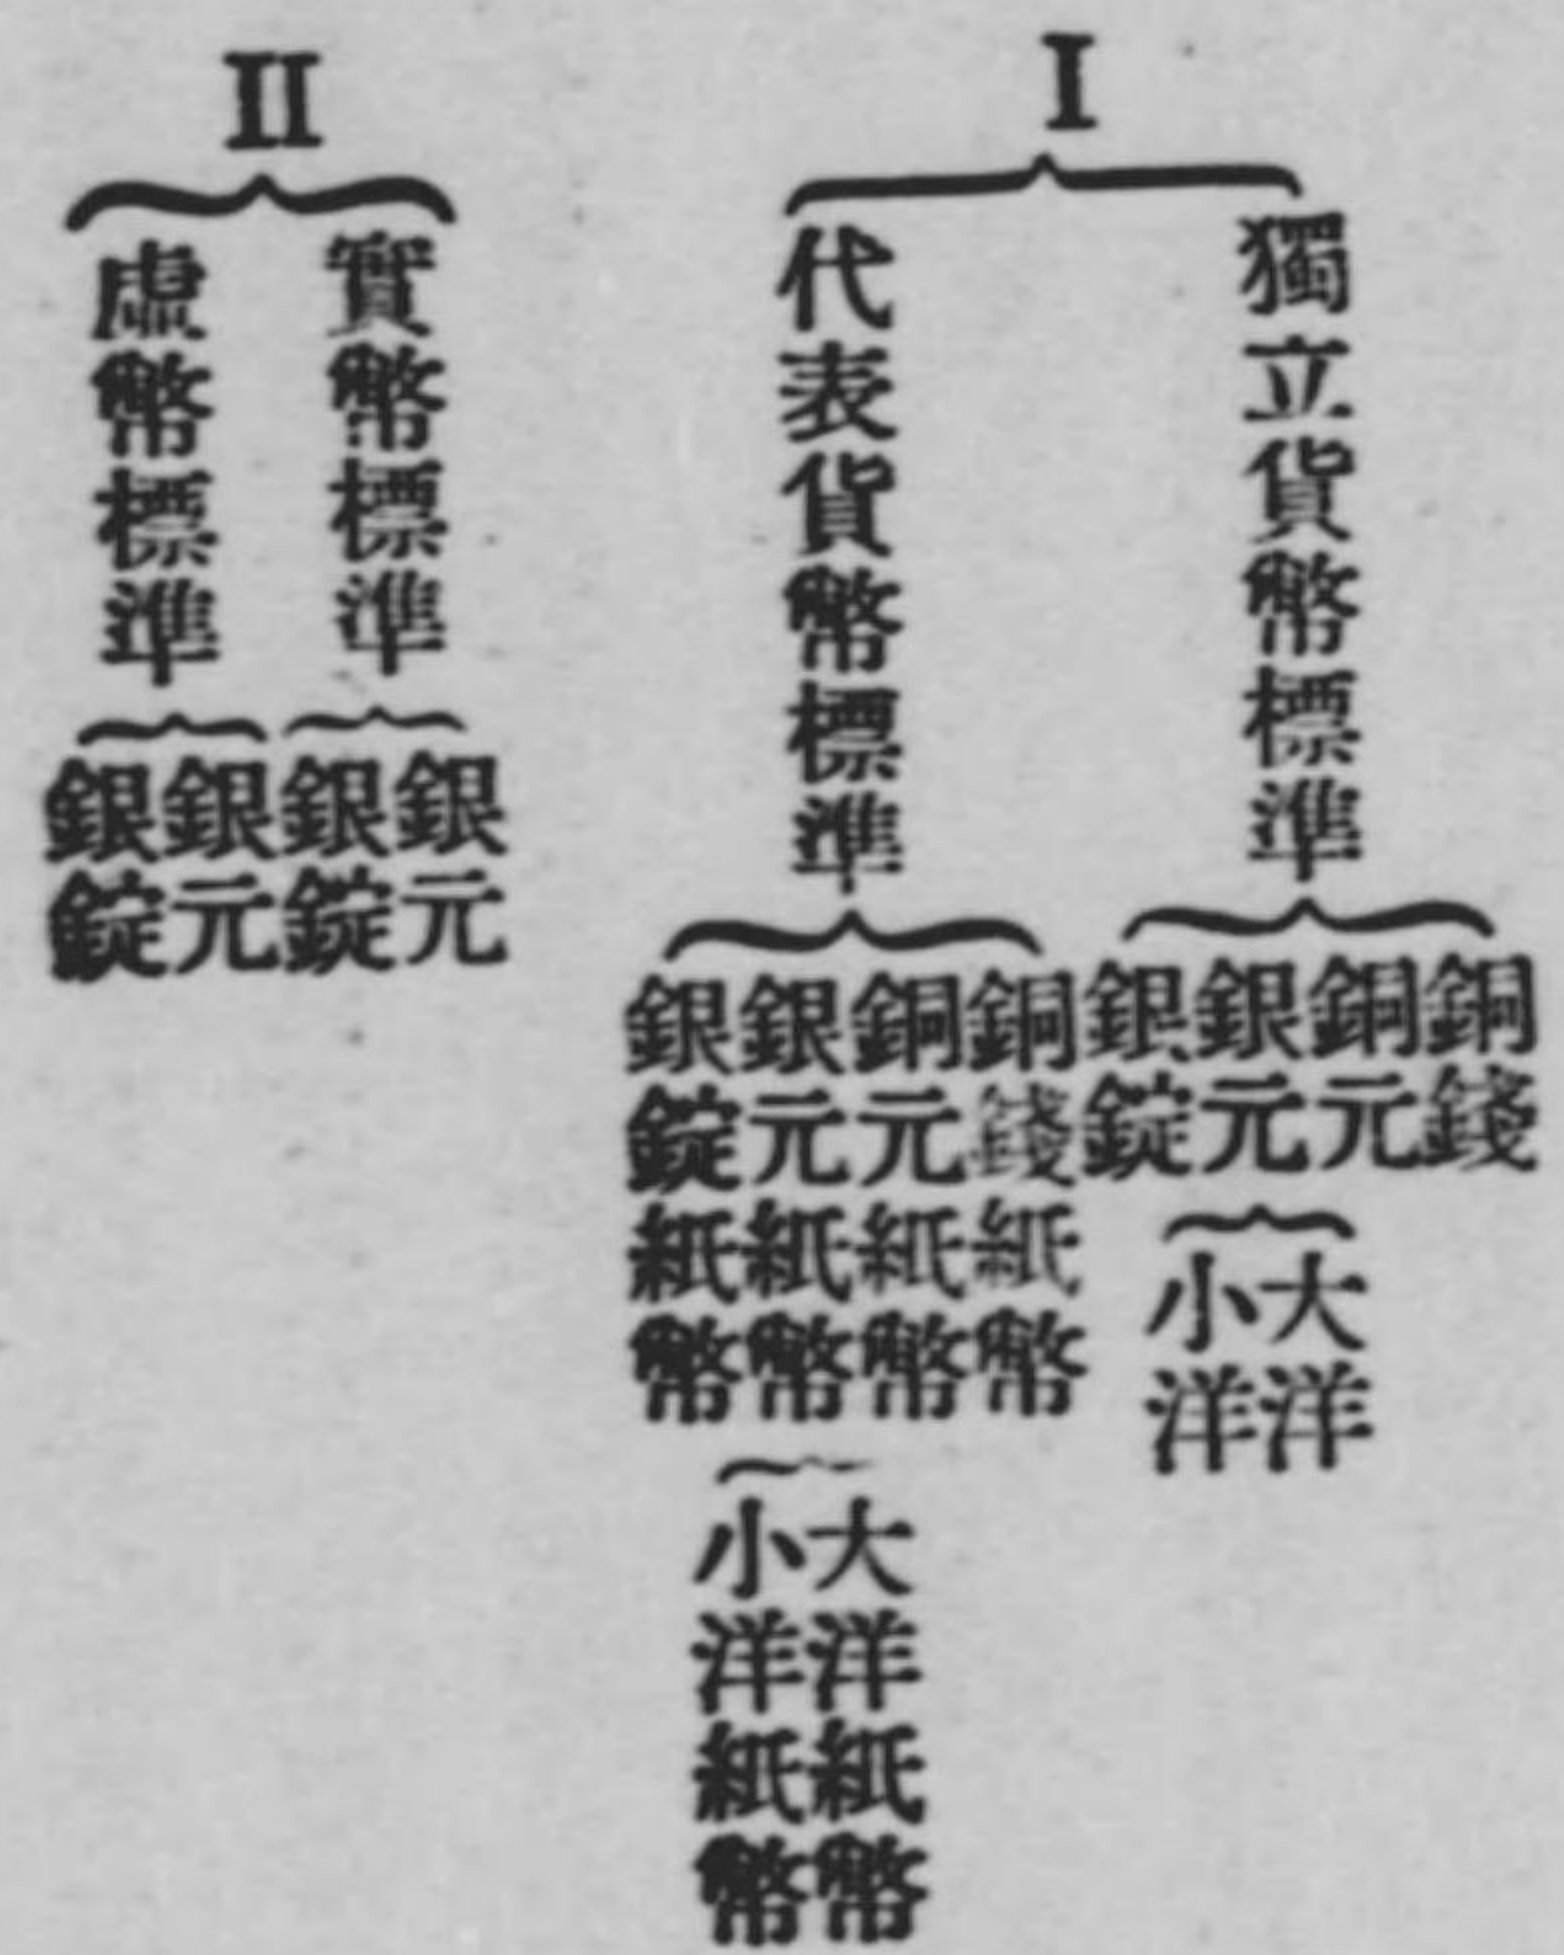 I
獨立貨幣標準
銅錢
銅元
銀元
大洋
小洋
銀錠
代表貨幣標準
銅錢紙幣
銅元紙幣
銀元紙幣
大洋紙幣
小洋紙幣
銀錠紙幣
II
實幣標準
銀元
銀錠
虛幣標準
銀元
銀錠